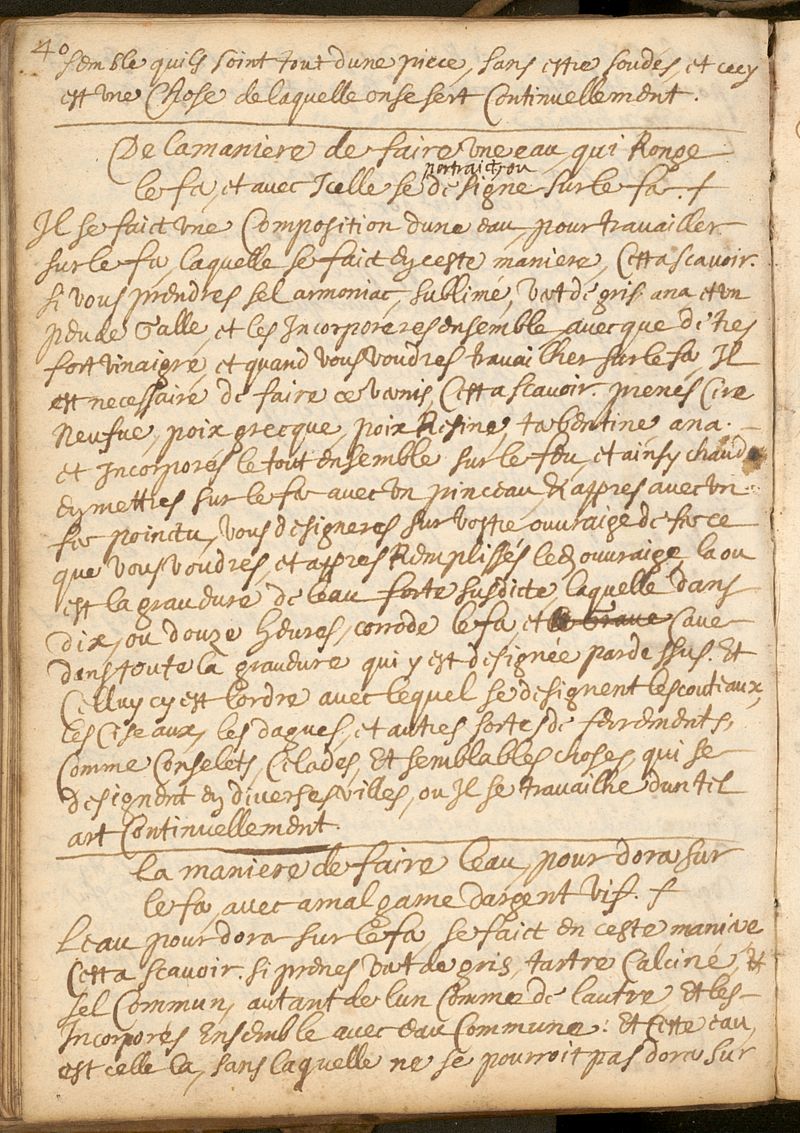 40
semble quils soint tout dune piece, sans estre soudés, et cecy
est une Chose de laquelle on se sert Continuellement.
De la maniere de faire une eau, qui Ronge
portraict, ou
le fer, et avec Icelle se designe sur le fer.
Il se faict une Composition dune eau, pour travailler
sur le fer, laquelle se faict en ceste maniere, Cest a scavoir.
si vous prendres sel armoniac, sublimé, vert de gris, ana et un
peu de Galle, et les Incorporeres ensemble avecque de tres
fort vinaigre, et quand vous voudres travailher sur le fer, Il
est necessaire de faire ce vernis, Cest a scavoir. prenés Cire
Neufve, poix grecque, poix Resine, terbentine ana.
et Incorporés le tout ensemble sur le feu, et ainsy chaud
en mettres sur le fer avec un pinceau, Et appres avec un
fer poinctu, vous designeres sur vostre ouvraige de fer ce
que vous voudres, et appres Remplissés led ouvraige, la ou
est la graveure de leau forte susdicte, laquelle dans
dix, ou douze heures, corrode le fer, et le Grave Cave
dans toute la graveure qui y est designée par dessus. Et
Celluy cy est lordre avec lequel se designent les couteaux,
les Ciseaux, les dagues, et autres sortes de ferrements,
Comme Corselets, Celades, Et semblables choses, qui se
designent en diverses villes, ou Il se travailhe dun tel
art Continuellement.
la maniere de faire leau, pour dorer sur
le fer, avec amalgame dargent vif.
Leau pour dorer sur le fer, se faict en ceste maniere
Cest a scavoir. si prenes vert de gris, tartre Calciné, Et
sel Commun, autant de lun Comme de lautre Et les
Incorporés Ensemble avec eau Commune: Et Cette eau,
est celle la, sans laquelle ne se pourroit pas dorer sur